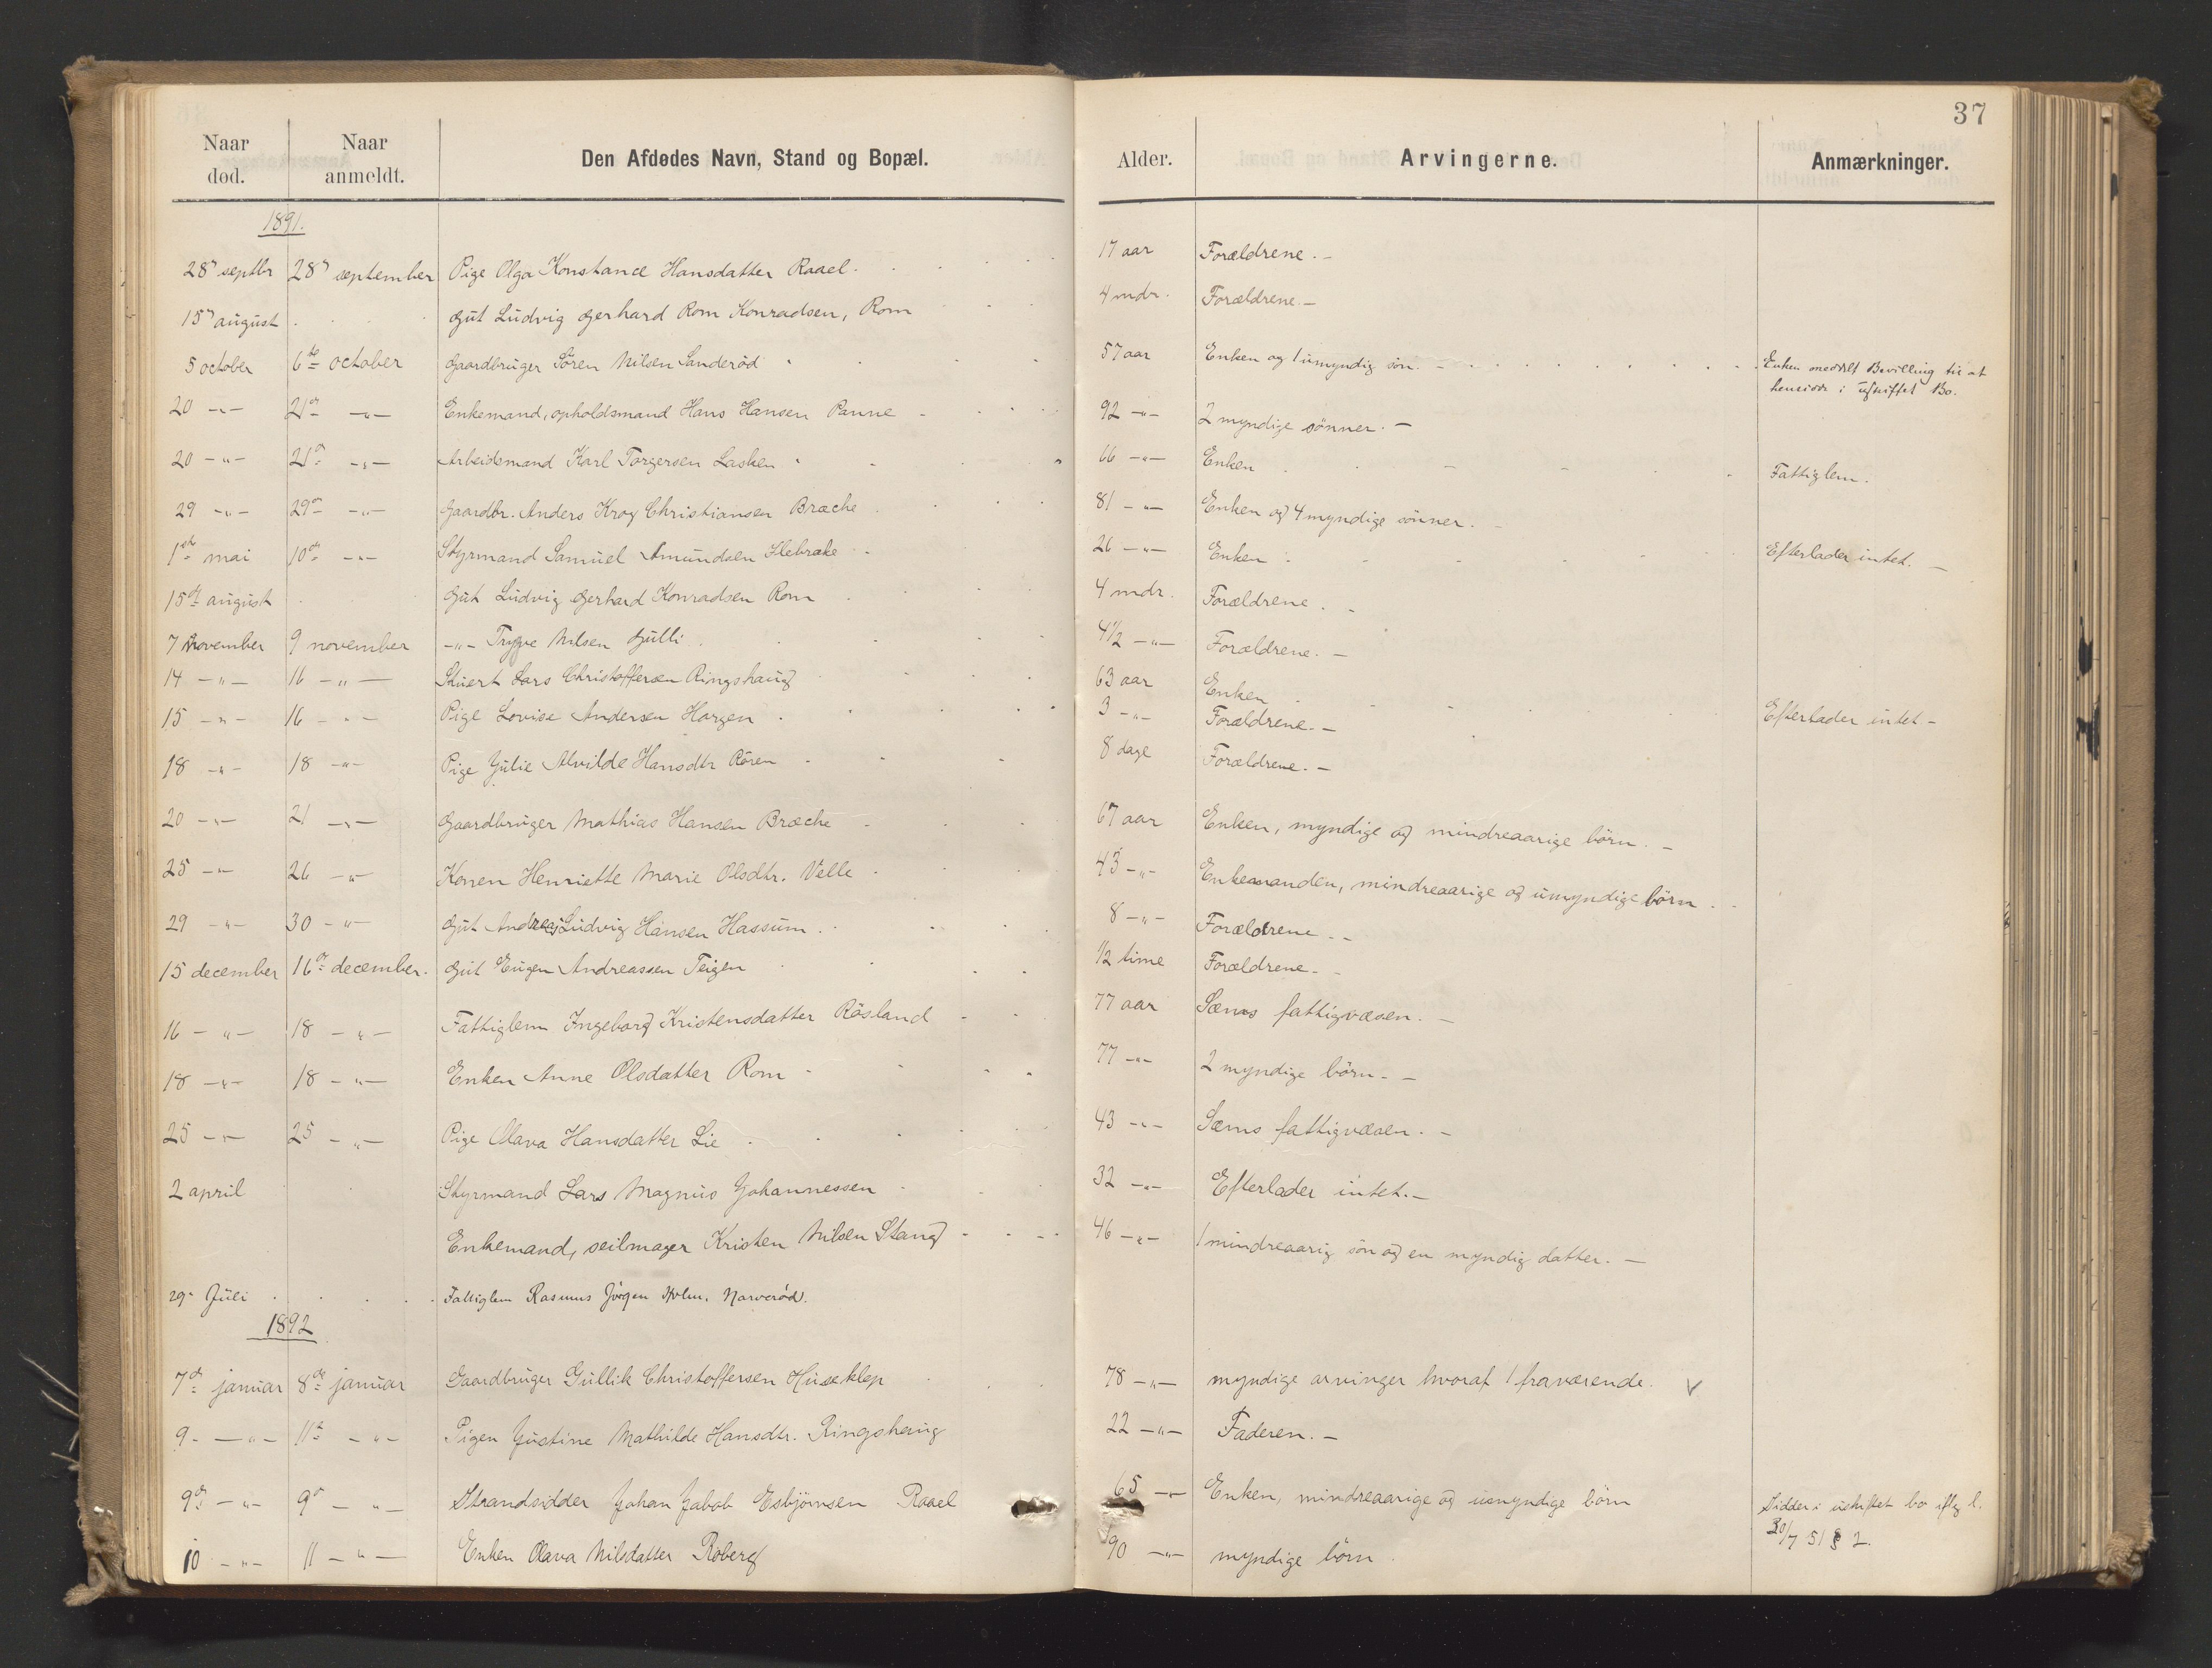 37
Naar død. Naar anmeldt. Den Afdødes Navn, Stand og Bopæl. Alder. Arvingerne. Anmærkninger.
1891.
28de septbr 28de september Pige Olga Konstance Hansdatter Raael. 17 aar Forældrene. -
15de august Gut Ludvig Gerhard Rom Konradsen, Rom 4 mdr. Forældrene. -
5 october 6te october Gaardbruger Sören Nilsen Sanderöd 57 aar Enken og 1 umyndig sön. - Enken meddelt Bevilling til at
hensidde i uskiftet Bo.
20 -"- 21de -"- Enkemand, opholdsmand Hans Hansen Panne 92 -"- 2 myndige sönner. -
20 -"- 21de -"- Arbeidsmand Karl Torgersen Lasken 66 -"- Enken Fattiglem.
29 -"- 29de -"- Gaardbr. Anders Krog Christiansen Bræche 81 -"- Enken og 4 myndige sönner. -
1ste mai 10de -"- Styrmand Samuel Amundsen Ilebrække 26 -"- Enken Efterlader intet. -
15de august Gut Ludvig Gerhard Konradsen Rom 4 mdr. Forældrene. -
7 November 9 november -"- Trygve Nilsen Gulli 4 1/2 -"- Forældrene. -
14 -"- 16 -"- Stuert Lars Christoffersen Ringshaug 63 aar Enken Efterlader intet -
15 -"- 16 -"- Pige Lovise Andersen Horgen 3 -"- Forældrene. -
18 -"- 18 -"- Pige Julie Alvilde Hansdtr Rören 8 dage Forældrene. -
20 -"- 21 -"- Gaardbruger Mathias Hansen Bræche 67 aar Enken, myndige og mindreaarige börn. -
25 -"- 26 -"- Konen Henriette Marie Olsdtr. Velle 43 -"- Enkemanden, mindreaarige og umyndige börn.
29 -"- 30 -"- Gut Andreas Ludvig Hansen Hassum 8 -"- Forældrene. -
15 december 16de december. Gut Eugen Andreassen Teigen 1/2 time Forældrene. -
16 -"- 18 -"- Fattiglem Ingeborg Kristensdatter Rösland 77 aar Sæms fattigvæsen. -
18 -"- 18 -"- Enken Anne Olsdatter Rom 77 -"- 2 myndige börn. -
25 -"- 25 -"- Pige Olava Hansdatter Lie 43 -"- Sæms fattigvæsen. -
2 april Styrmand Lars Magnus Johannessen 32 -"- Efterlader intet. -
Enkemand, seilmager Kristen Nilsen Stang 46 -"- 1 mindreaarig sön og en myndig datter. -
29. Juli Fattiglem Rasmus Jörgen Holm, Narveröd.
1892
7de januar 8de januar Gaardbruger Gullik Christoffersen Huseklep 78 -"- myndige arvinger hvoraf 1 fraværende. V
9. -"- 11te -"- Pigen Justine Mathilde Hansdtr. Ringshaug 22 -"- Faderen. -
9de -"- 9de -"- Strandsidder Johan Jakob Esbjörnsen Raael 65 -"- Enken, mindreaarige og umyndige börn Sidder i uskiftet bo iflg l.
30/7 51 § 2.
10 -"- 11 -"- Enken Olava Nilsdatter Roberg 90 -"- myndige börn.